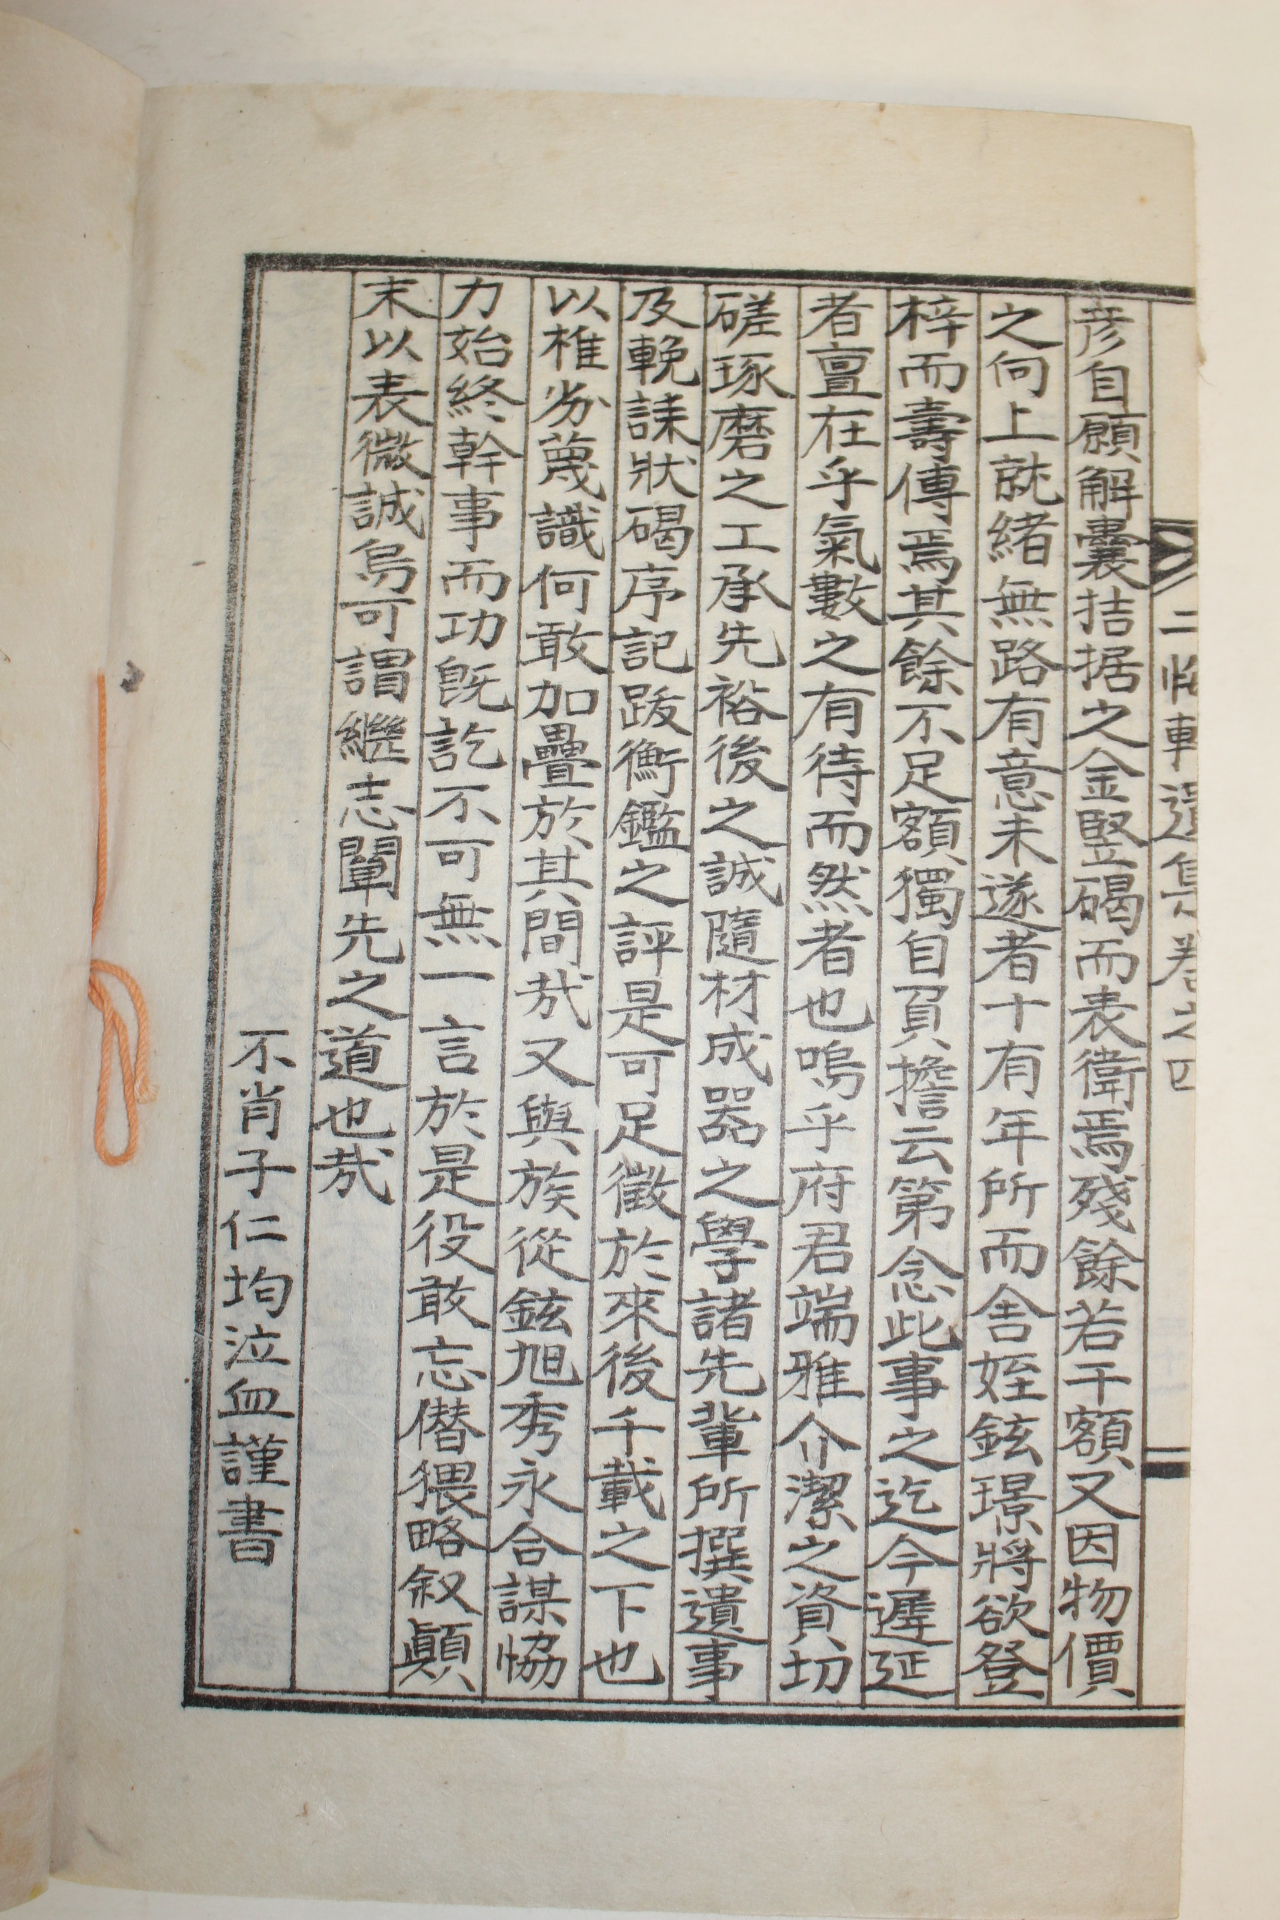 二臨軒遺集卷之四
彦自願解囊拮据之金竪碣而表衛焉殘餘若干額又因物價
之向上就緖無路有意未遂者十有年所而舍姪鉉璟將欲登
梓而壽傳焉其餘不足額獨自負擔云第念此事之迄今遲延
者亶在乎氣數之有待而然者也嗚乎府君端雅介潔之資切
磋琢磨之工承先裕後之誠隨材成器之學諸先輩所撰遺事
及輓誄狀碣序記跋衡鑑之評是可足徵於來後千載之下也
以椎劣蔑識何敢加疊於其間哉又與族從鉉旭秀永合謀恊
力始終幹事而功旣訖不可無一言於是役敢忘僭猥略叙顚
末以表微誠烏可謂繼志闡先之道也哉
不肖子仁均泣血謹書